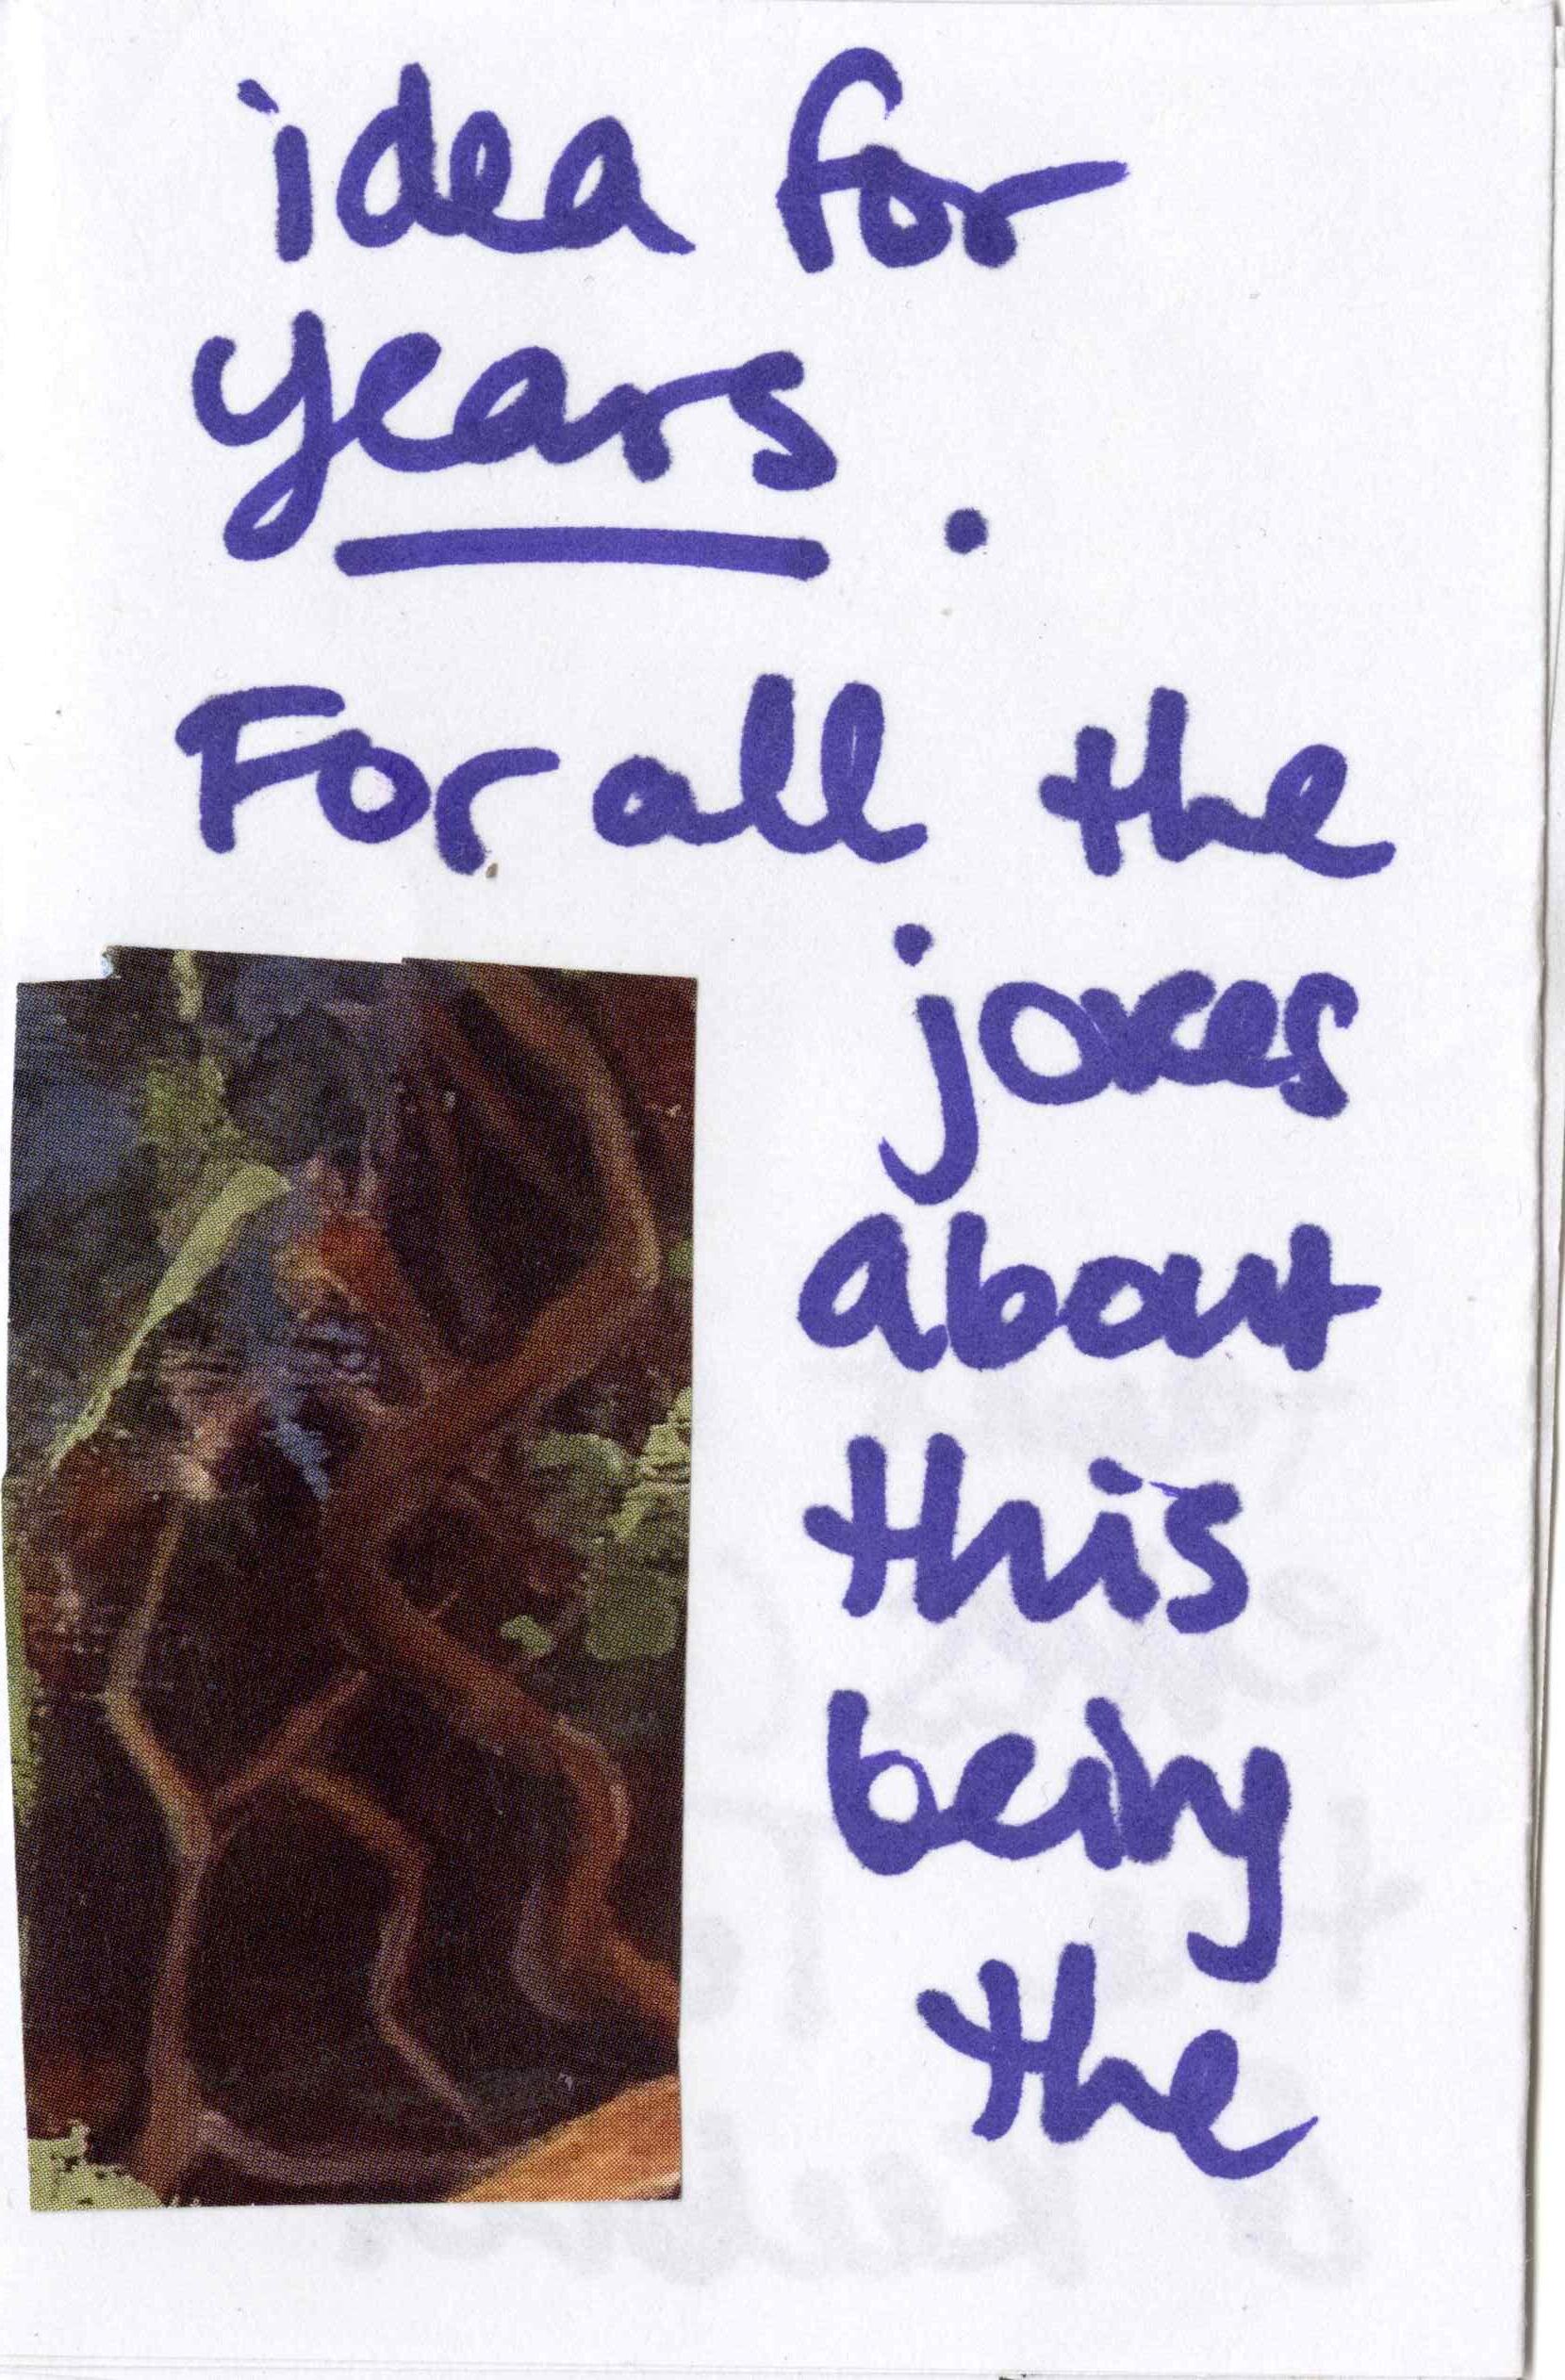 idea for
years.
For all the
jokes
about
this
being
the